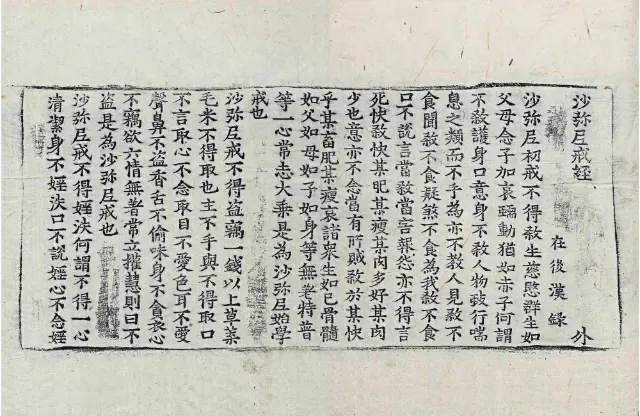 沙弥尼戒經 外
在後漢錄
沙弥尼初戒不得殺生慈愍群生如
父母念子加哀蠕動猶如赤子何謂
不殺護身口意身不殺人物蚑行喘
息之類而不手為亦不教人見殺不
食聞殺不食疑煞不食為我殺不食
口不說言當殺當害報怨亦不得言
死快殺快某肥某瘦某肉多好某肉
少也意亦不念當有所賊殺於某快
乎某畜肥某瘦哀諸衆生如己骨髓
如父如母如子如身等無差特普
等一心常志大乘是為沙弥尼始學
戒也
沙弥尼戒不得盜竊一錢以上草葉
毛米不得取也主不手與不得取口
不言取心不念取目不愛色耳不愛
聲鼻不盜香舌不偷味身不貪衣心
不竊欲六情無著常立權慧則曰不
盜是為沙弥尼戒也
沙弥尼戒不得婬泆何謂不得一心
清潔身不婬泆口不說婬心不念婬